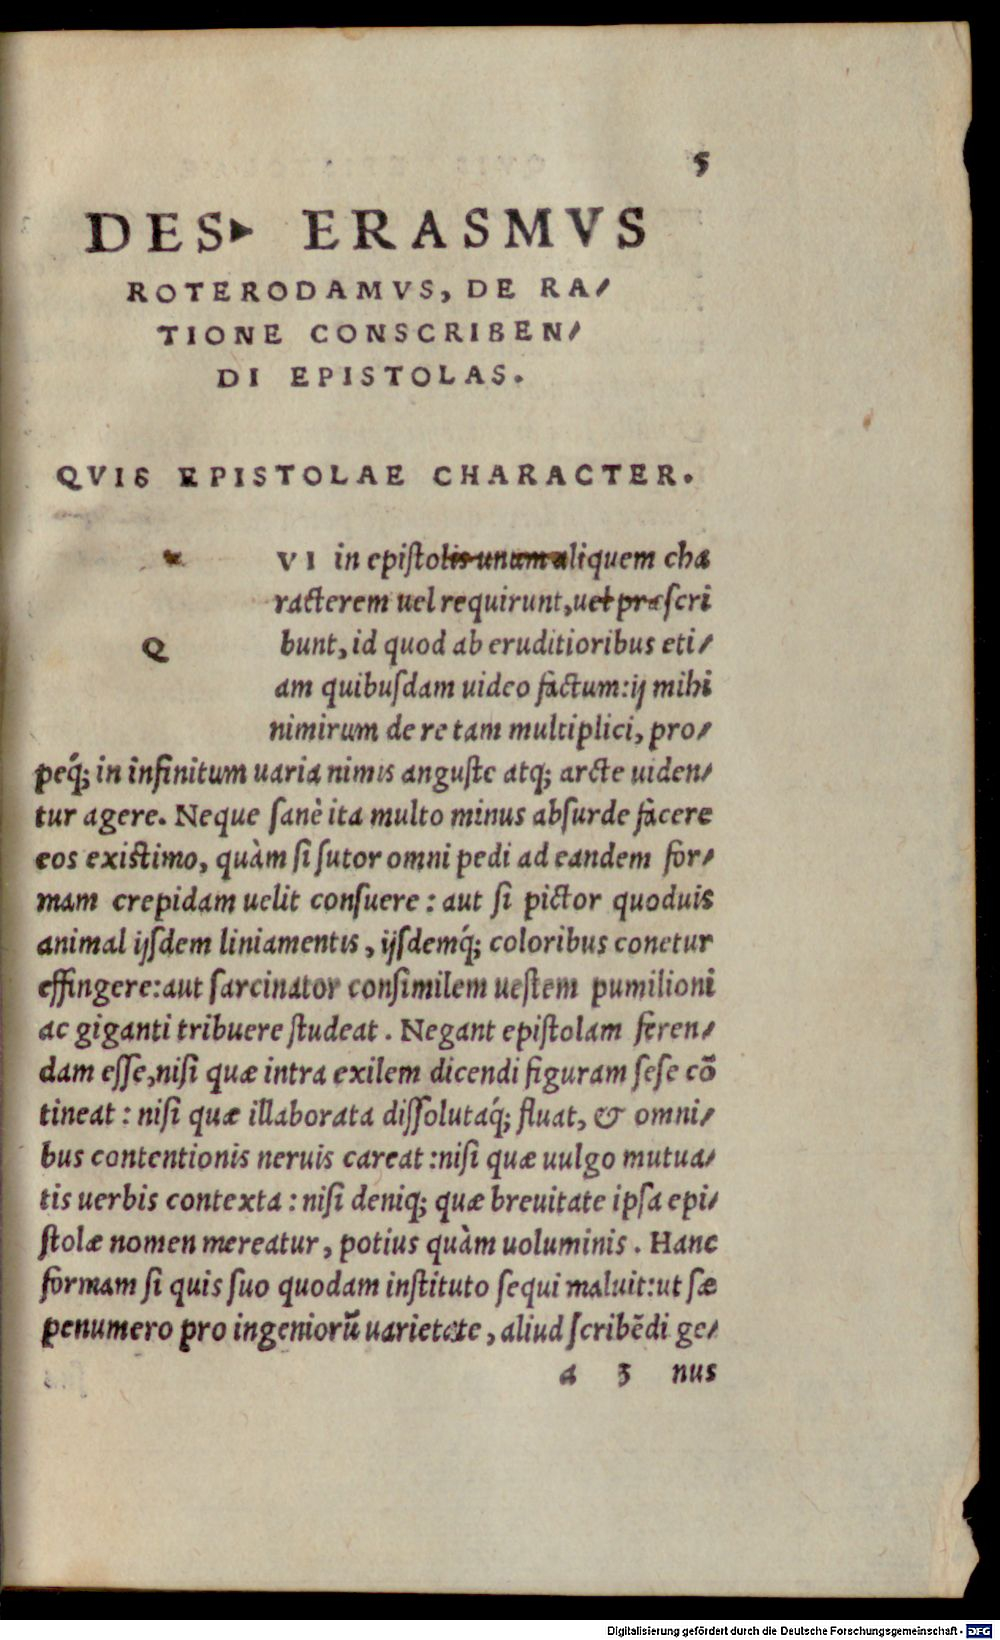 5
DES▸ ERASMVS
ROTERODAMVS, DE RA⸗
TIONE CONSCRIBEN⸗
DI EPISTOLAS.
QVIS EPISTOLAE CHARACTER.
VI in epiſtolis unum aliquem cha
racterem uel requirunt, uel præſcri
Q bunt, id quod ab eruditioribus eti⸗
am quibuſdam uideo factum: ij mihi
nimirum de re tam multiplici, pro⸗
peq́; in infinitum uaria nimis anguſte atq; arcte uiden⸗
tur agere. Neque ſanè ita multo minus abſurde facere
eos existimo, quàm ſi ſutor omni pedi ad eandem for⸗
mam crepidam uelit conſuere: aut ſi pictor quoduis
animal ijſdem liniamentis, ijſdemq́; coloribus conetur
effingere: aut ſarcinator conſimilem ueſtem pumilioni
ac giganti tribuere ſtudeat. Negant epiſtolam feren⸗
dam eſſe, niſi quæ intra exilem dicendi figuram ſeſe cõ
tineat: niſi quæ illaborata diſſolutaq́; fluat, & omni⸗
bus contentionis neruis careat: niſi quæ uulgo mutua⸗
tis uerbis contexta: niſi deniq; quæ breuitate ipſa epi⸗
ſtolæ nomen mereatur, potius quàm uoluminis. Hanc
formam ſi quis ſuo quodam inſtituto ſequi maluit: ut ſæ
penumero pro ingeniorũ uarietate, aliud ſcribẽdi ge⸗
a 3 nus
Digitalisierung gefördert durch die Deutsche Forschungsgemeinschaft - DFG